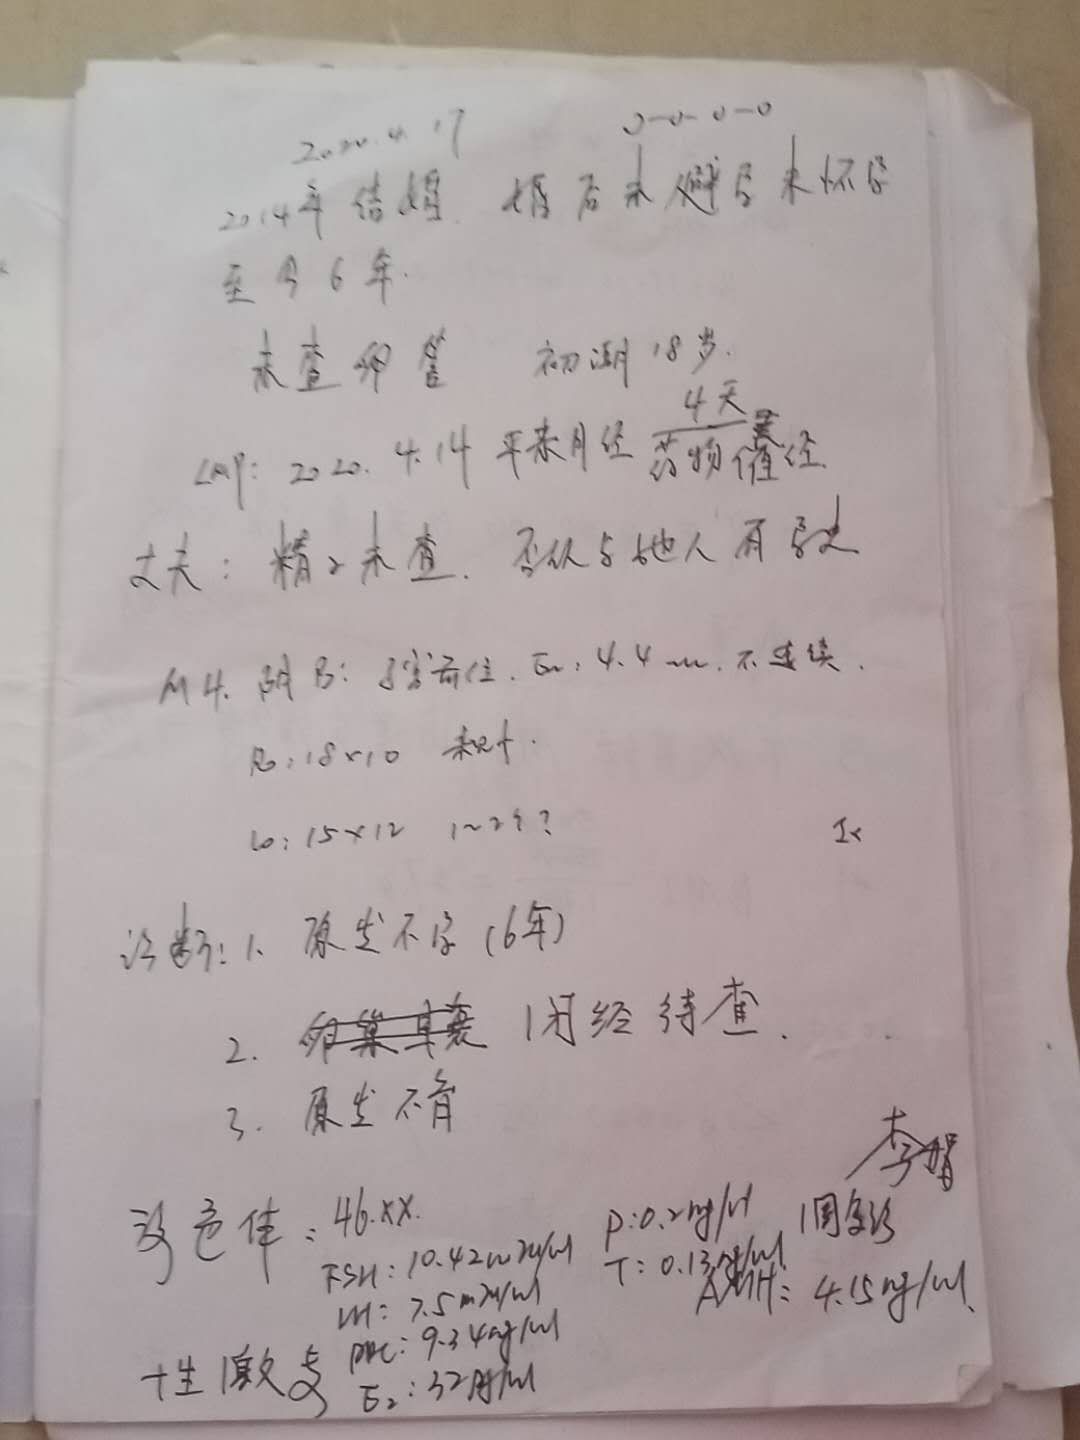 2020.4.17 0-0-0-0
2014年结婚. 婚后未避孕未怀孕
至今6年.
未查卵管 初潮18岁.
4天
LMP: 2020.4.14 平素月经 药物催经.
丈夫: 精子未查. 否认与他人有孕史
M4. 阴B: 子宫前位. En: 4.4mm. 不连续.
Ro: 18×10 未见卡.
Lo: 15×12 1~2个?
诊断: 1. 原发不孕 (6年)
2. 闭经待查.
3. 原发不育
李娟
染色体: 46.XX. P: 0.2ng/ml 1周复诊
FSH: 10.42mIU/ml T: 0.13ng/ml
LH: 7.5mIU/ml AMH: 4.15ng/ml.
PRL: 9.34ng/ml
性激素 E2: 32pg/ml